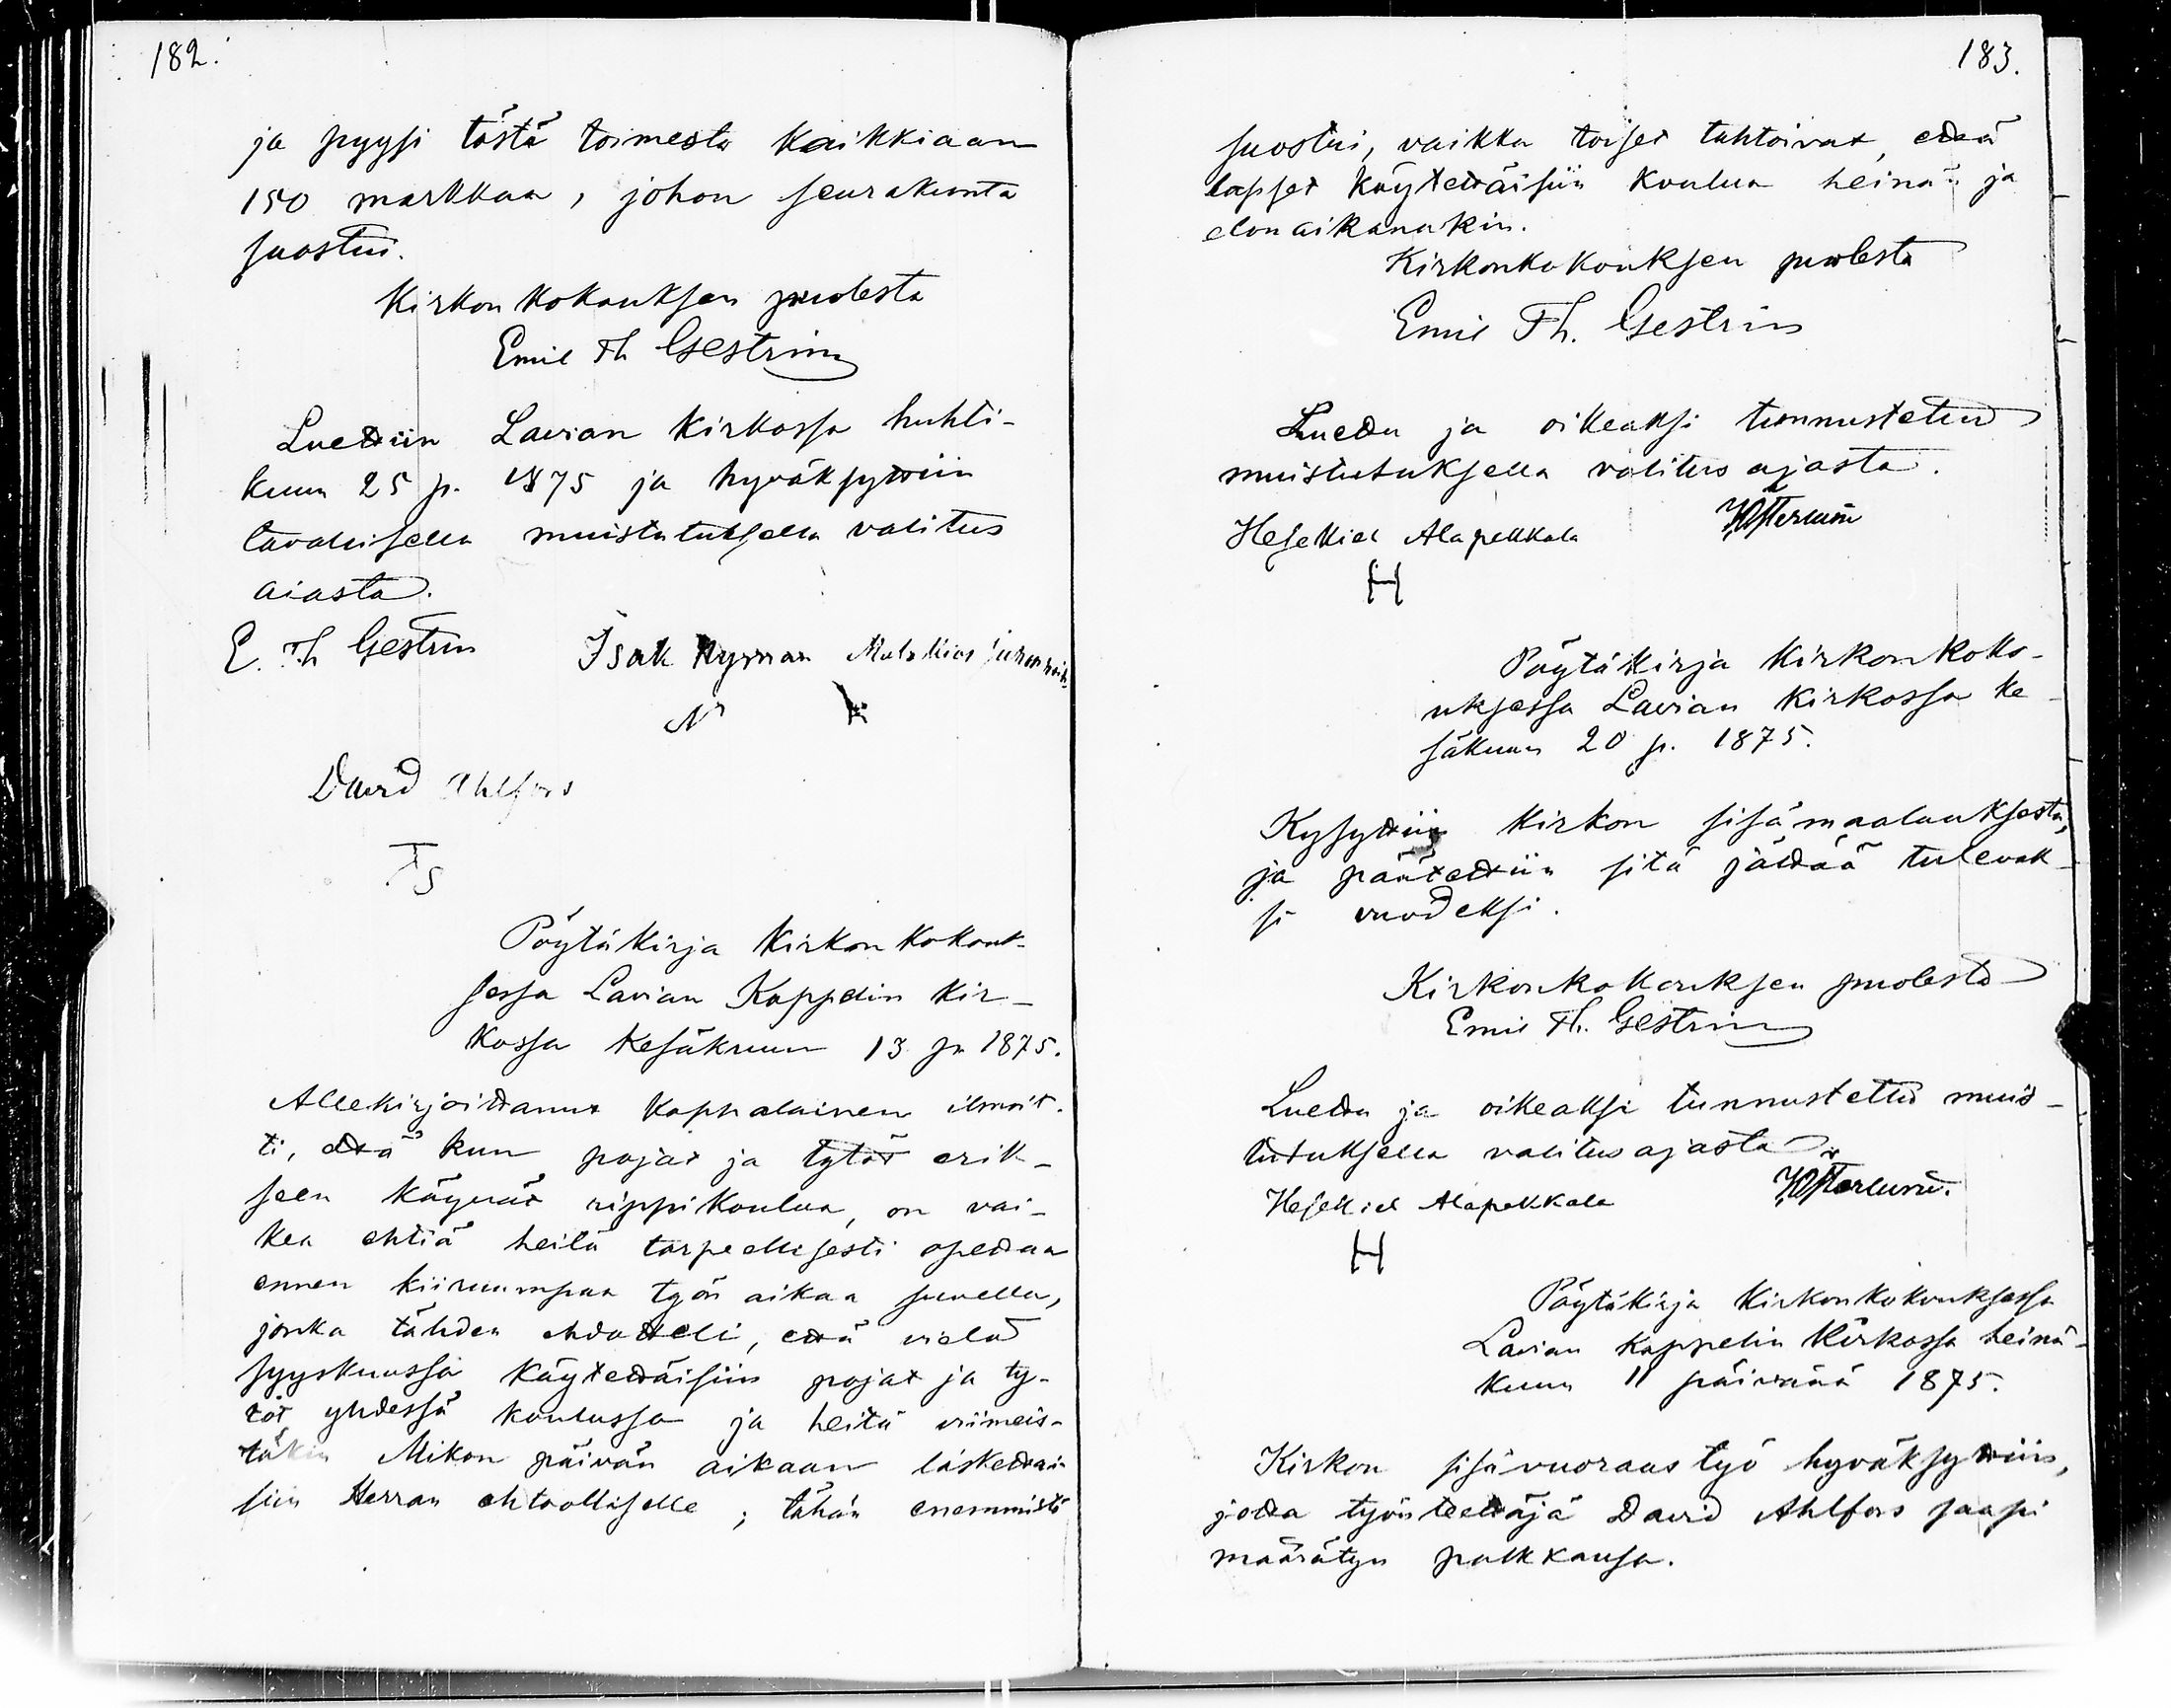 182.
ja pyysi tästä toimesta kaikkiaan
150 markkaa, johon seurakunta
suostui.
Kirkonkokouksen puolesta
Emil Th Gestrin
Luettiin Lavian kirkossa huhti-
kuun 25 p. 1875 ja hyväksyttiin
tavallisella muistutuksella valitus
aiasta.
E. Th Gestrin Isak Nyman Malakias
N
David Ahlfors
Pöytäkirja kirkonkokouk-
sessa Lavian Kappelin kir-
kossa kesäkuun 13 p. 1875.
Allekirjoittanut kappalainen ilmoit-
ti, että kun pojat ja tytöt erik-
seen käyvät rippikoulua, on vai-
kea ehtiä heitä tarpeellisesti opettaa
ennen kiiruumpaa työn aikaa suvella,
jonka tähden ehdotteli, että vielä
syyskuussa käytettäisiin pojat ja ty-
töt yhdessä koulussa ja heitä viimeis-
täkin Mikon päivän aikaan laskettai-
siin Herran ehtoolliselle; tähän enemmistö
183.
suostui, vaikka toiset tahtoivat, että
lapset käytettäisiin koulua heinän ja
elon aikanakin.
Kirkonkokouksen puolesta
Emil Th. Gestrin
Luettu ja oikeaksi tunnustettu
muistutuksella valitus ajasta.
Hesekiel Alapekkala H Österlund
H
Pöytäkirja kirkonkoko-
uksessa Lavian kirkossa ke-
säkuun 20 p. 1875.
Kysyttiin kirkon sisämaalauksesta,
ja päätettiin sitä jättää tulevak-
si vuodeksi.
Kirkonkokouksen puolesta
Emil Th. Gestrin
Luettu ja oikeaksi tunnustettu muis-
tutuksella valitusajasta
Hesekiel Alapekkala H Österlund.
H
Pöytäkirja kirkonkokouksessa
Lavian kappelin kirkossa heinä-
kuun 11 päivänä 1875.
Kirkon sisävuoraus työ hyväksyttiin,
jotta työnteettäjä David Ahlfors saapi
määrätyn palkkansa.